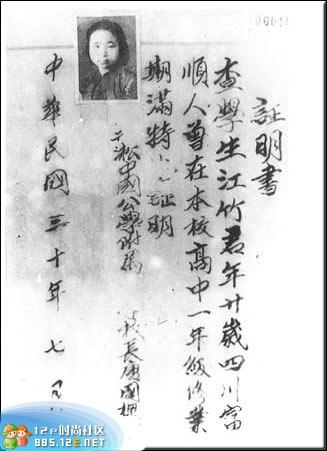 証明書
查學生江竹君年廿歲四川富
順人曾在本校高中一年級修業
期滿特此証明
吳淞中國公學附屬
校長
中華民國三十年七月
12e时尚社区
BBS.12E.NET